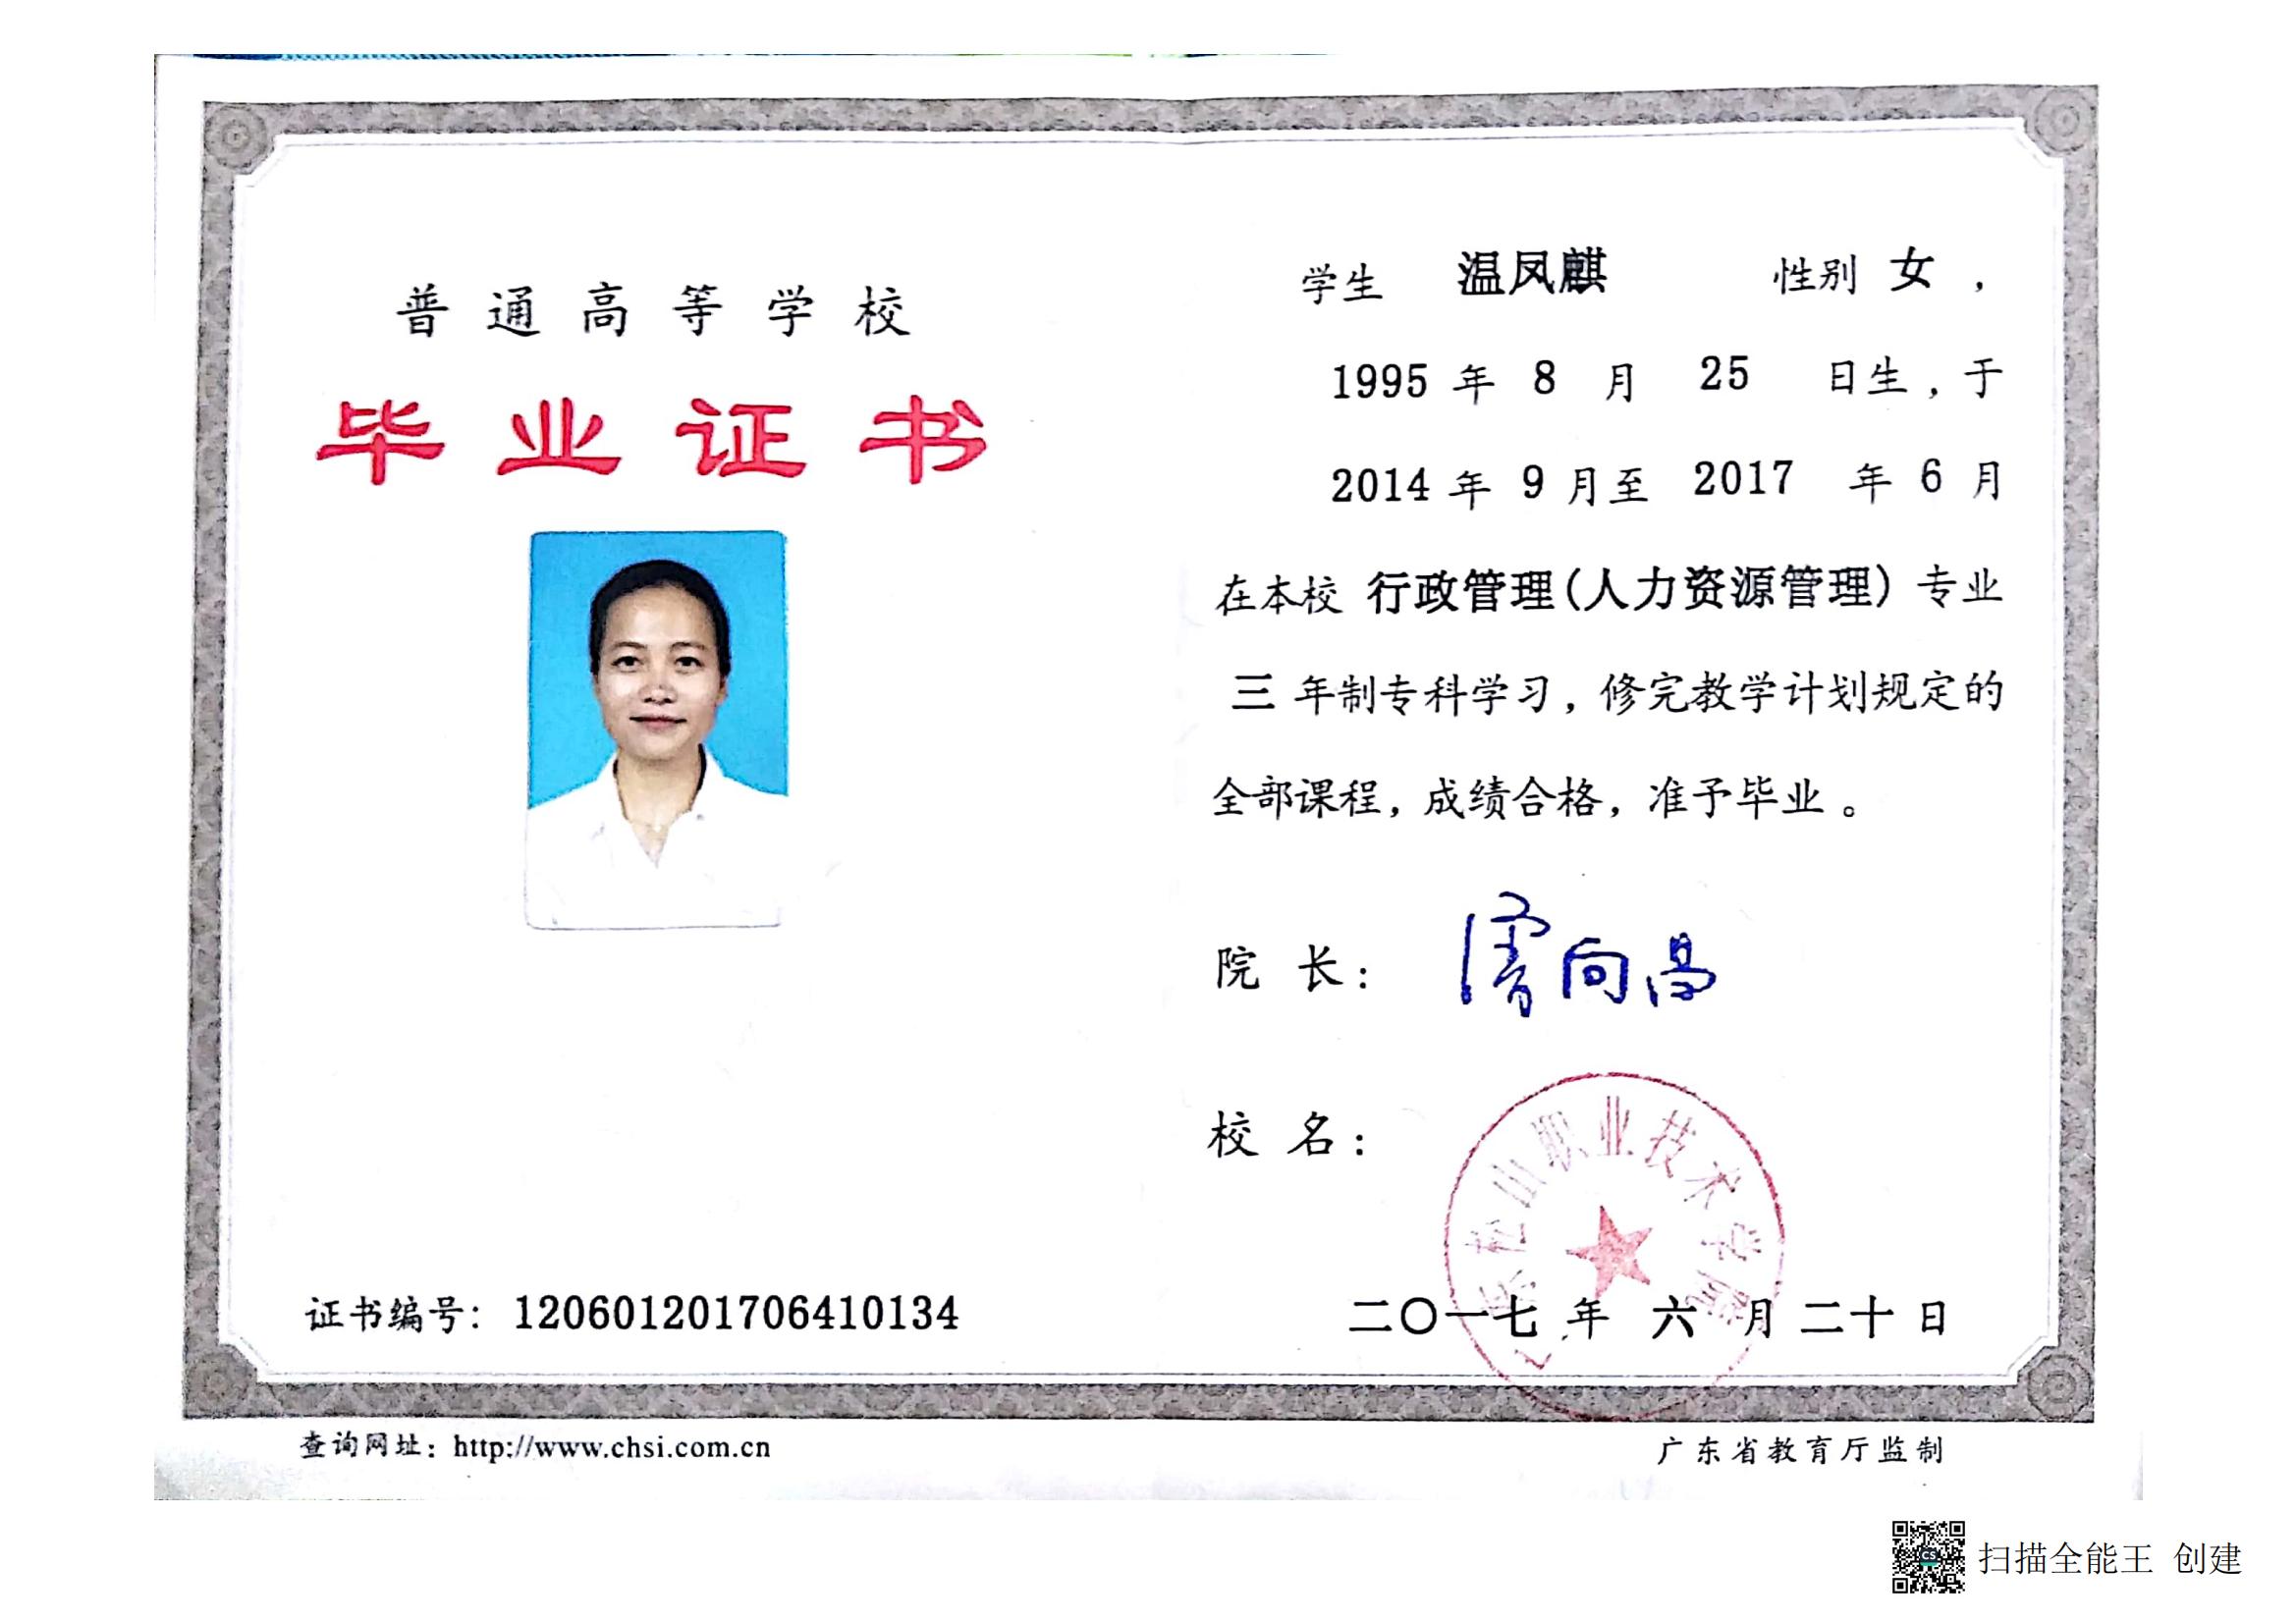 普通高等学校
毕业证书
证书编号：120601201706410134
学生 温凤麒 性别 女，
1995 年 8 月 25 日生，于
2014 年 9 月至 2017 年 6 月
在本校 行政管理(人力资源管理) 专业
三 年制专科学习，修完教学计划规定的
全部课程，成绩合格，准予毕业。
院 长：
向高
校 名：
广东松山职业技术学院
二〇一七 年 六 月 二十 日
查询网址：http://www.chsi.com.cn
广东省教育厅监制
CS
扫描全能王 创建